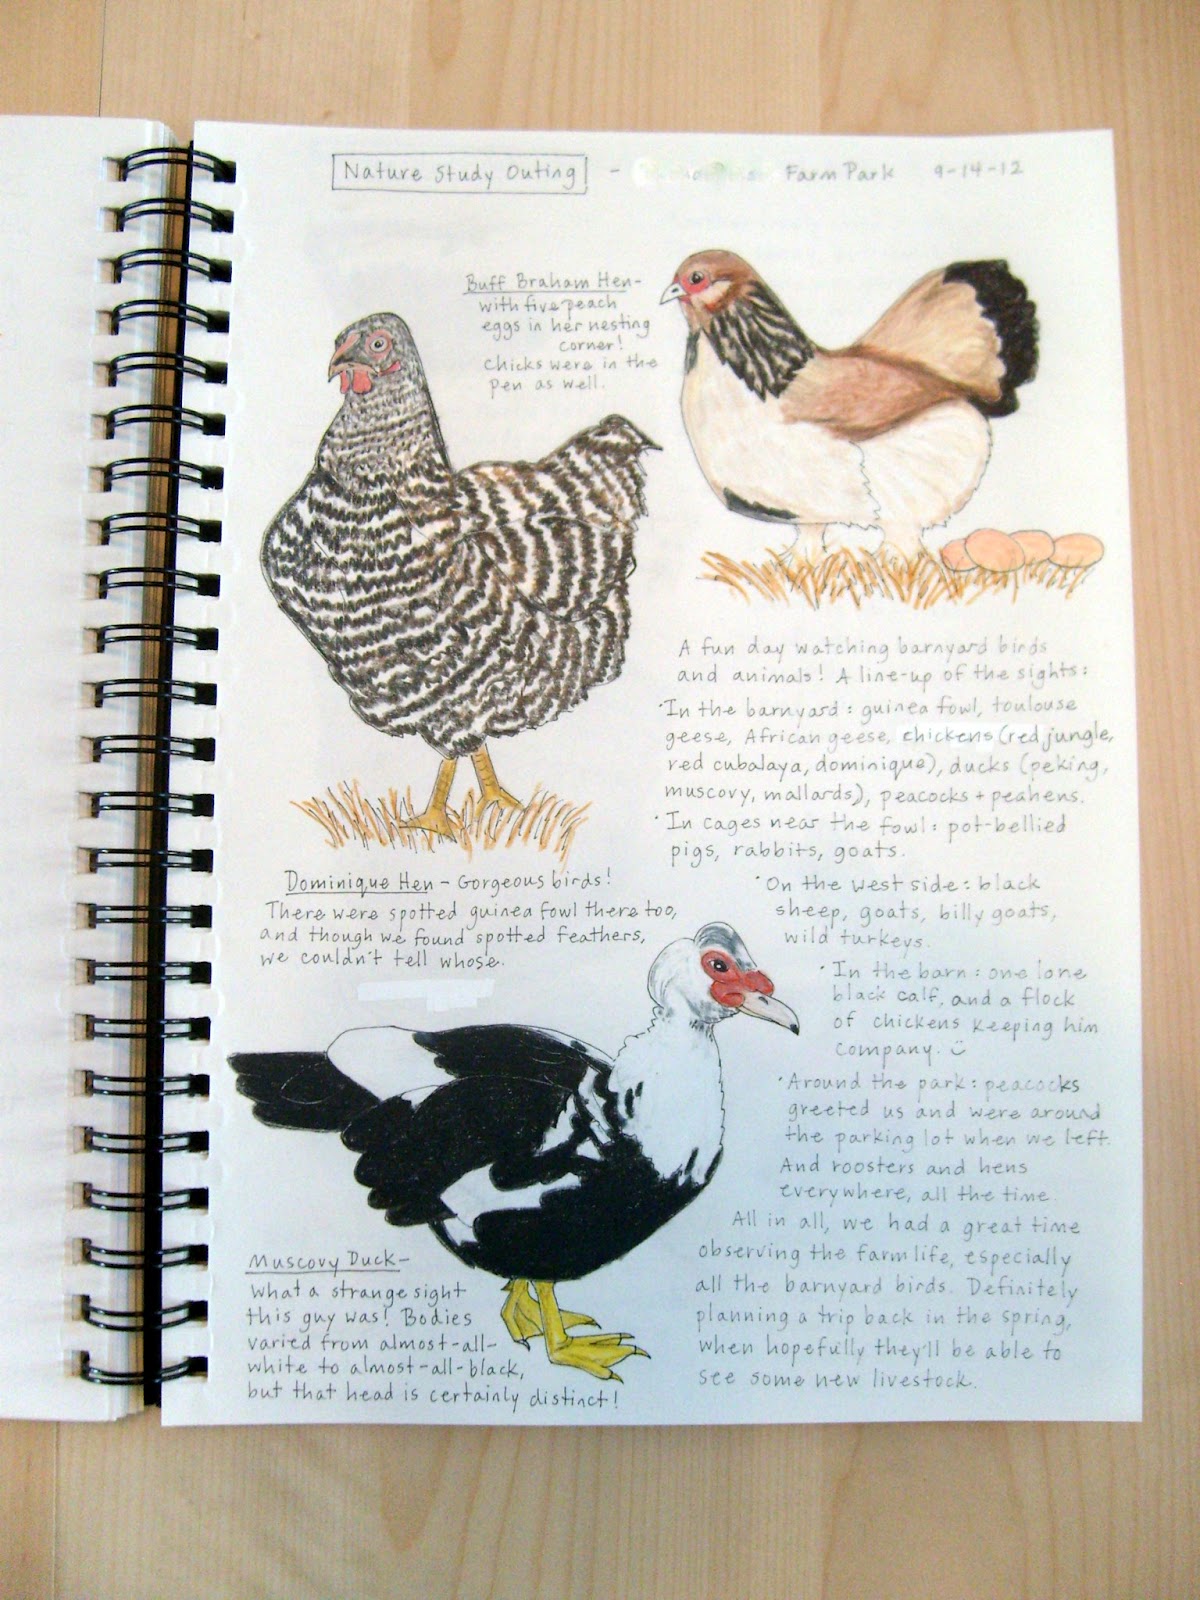 Nature Study Outing - Farm Park 9-14-12
Buff Braham Hen-
with five peach
eggs in her nesting
corner!
Chicks were in the
pen as well.
Dominique Hen - Gorgeous birds!
There were spotted guinea fowl there too,
and though we found spotted feathers,
we couldn't tell whose.
Muscovy Duck-
What a strange sight
this guy was! Bodies
varied from almost-all-
white to almost-all-black,
but that head is certainly distinct!
A fun day watching barnyard birds
and animals! A line-up of the sights:
·In the barnyard: guinea fowl, toulouse
geese, African geese, chickens (red jungle,
red cubalaya, dominique), ducks (peking,
muscovy, mallards), peacocks + peahens.
·In cages near the fowl: pot-bellied
pigs, rabbits, goats.
·On the west side: black
sheep, goats, billy goats,
wild turkeys.
·In the barn: one lone
black calf, and a flock
of chickens keeping him
company. ☺
·Around the park: peacocks
greeted us and were around
the parking lot when we left.
And roosters and hens
everywhere, all the time.
All in all, we had a great time
observing the farm life, especially
all the barnyard birds. Definitely
planning a trip back in the spring,
when hopefully they'll be able to
see some new livestock.